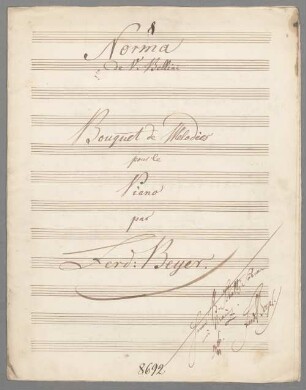 Norma
de V. Bellini
Bouquet de Melodies
pour le
Piano
par
Ferd: Beyer.
8692